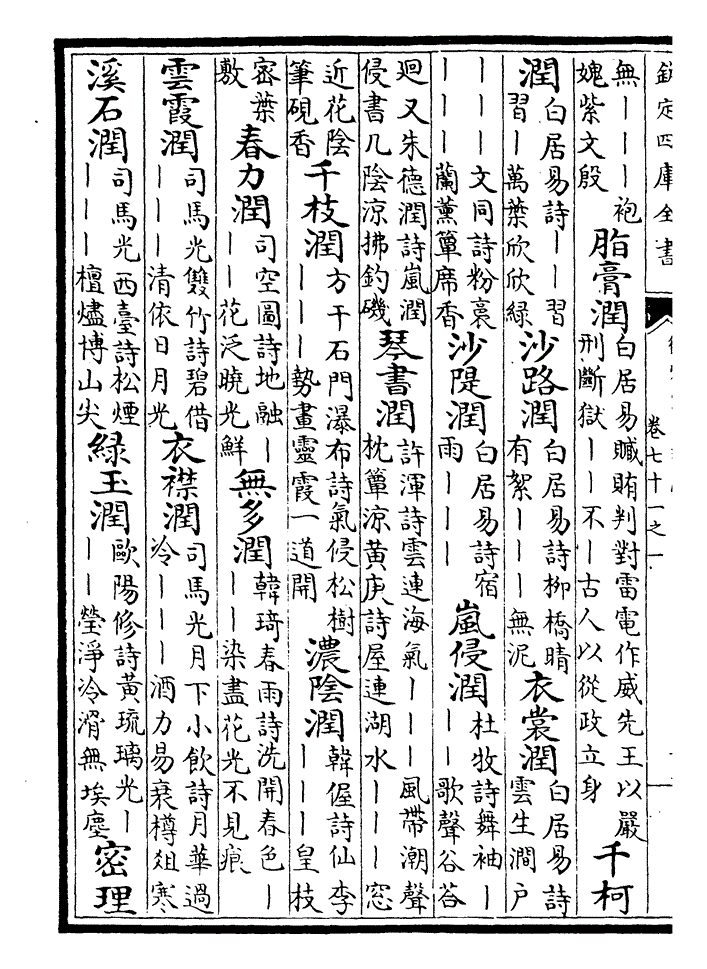 欽定四庫全書
卷七十一之一
無｜｜｜袍
媿紫文殷
脂膏潤
白居易贓賄判對雷電作威先王以嚴
刑斷獄｜｜不｜古人以從政立身
千柯
潤
白居易詩｜｜習
習｜萬葉欣欣緑
沙路潤
白居易詩柳橋晴
有絮｜｜｜無泥
衣裳潤
白居易詩
雲生澗戶
｜｜｜文同詩粉裛
｜｜｜蘭薰簟席香
沙隄潤
白居易詩宿
雨｜｜｜
嵐侵潤
杜牧詩舞袖｜
｜｜歌聲谷荅
廻又朱德潤詩嵐潤
侵書几陰涼拂釣磯
琴書潤
許渾詩雲連海氣｜｜｜風帶潮聲
枕簟涼黄庚詩屋連湖水｜｜｜窓
近花陰
筆硯香
千枝潤
方干石門瀑布詩氣侵松樹
｜｜｜勢畫靈霞一道開
濃陰潤
韓偓詩仙李
｜｜｜皇枝
密葉
敷
春力潤
司空圖詩地融｜
｜｜花泛曉光鮮
無多潤
韓琦春雨詩洗開春色｜
｜｜染盡花光不見痕
雲霞潤
司馬光雙竹詩碧借
｜｜｜清依日月光
衣襟潤
司馬光月下小飲詩月華過
冷｜｜｜酒力易衰樽俎寒
溪石潤
司馬光西臺詩松煙
｜｜｜檀燼博山尖
緑玉潤
歐陽修詩黄琉璃光｜
｜｜瑩淨冷滑無埃塵
密理